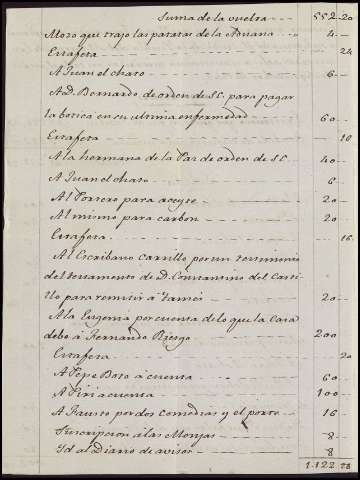 Suma de la vuelta 552.. 20
Mozo que trajo las patatas de la Aduana 4..
Estafeta 24
A Juan el chato 6..
A d. Bernardo de orden de S.E. para pagar
la botica en su ultima enfermedad 60..
Estafeta 10
A la hermana de la Paz de orden de S.E. 40..
A Juan el chato 6
Al Portero para aceyte 20..
Al mismo para carbon 20..
Estafeta 16
Al Escribano Carrillo por un testimonio
del testamento de D. Constantino del Casti-
llo para remitir a 20..
A la Eugenia por cuenta de lo que la Casa
debe à Fernando Riesgo 200
Estafeta 20
A Pepe Boto à cuenta 60
A Piri a cuenta 100
A Fausto por dos comedias y el porte 16
Suscripcion à las Monjas 8
Yd al Diario de avisos 8
1.122